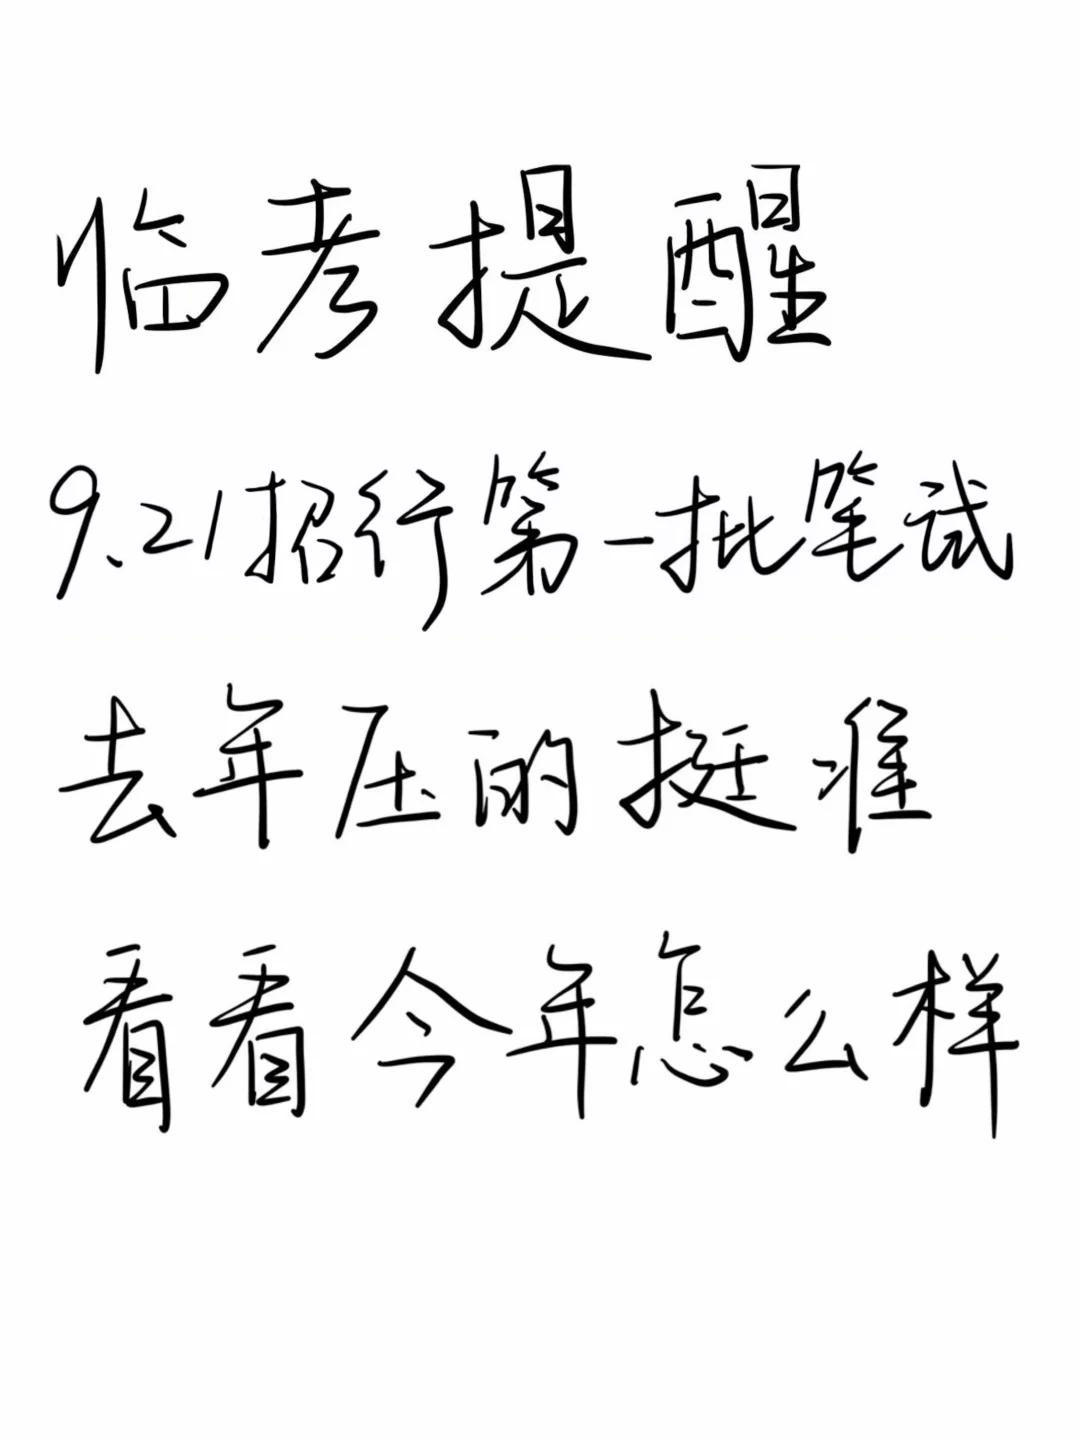 临考提醒
9.21招行第一批笔试
去年压的挺准
看看今年怎么样